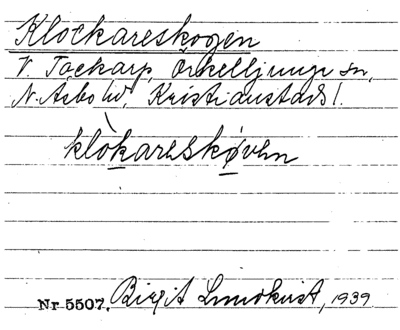 Klockareskogen
V. Tockarp, Örkelljunga sn,
N. Åsbo hd, Kristianstads l.
klòkareskøven
Nr 5507. Birgit Lundkvist, 1939